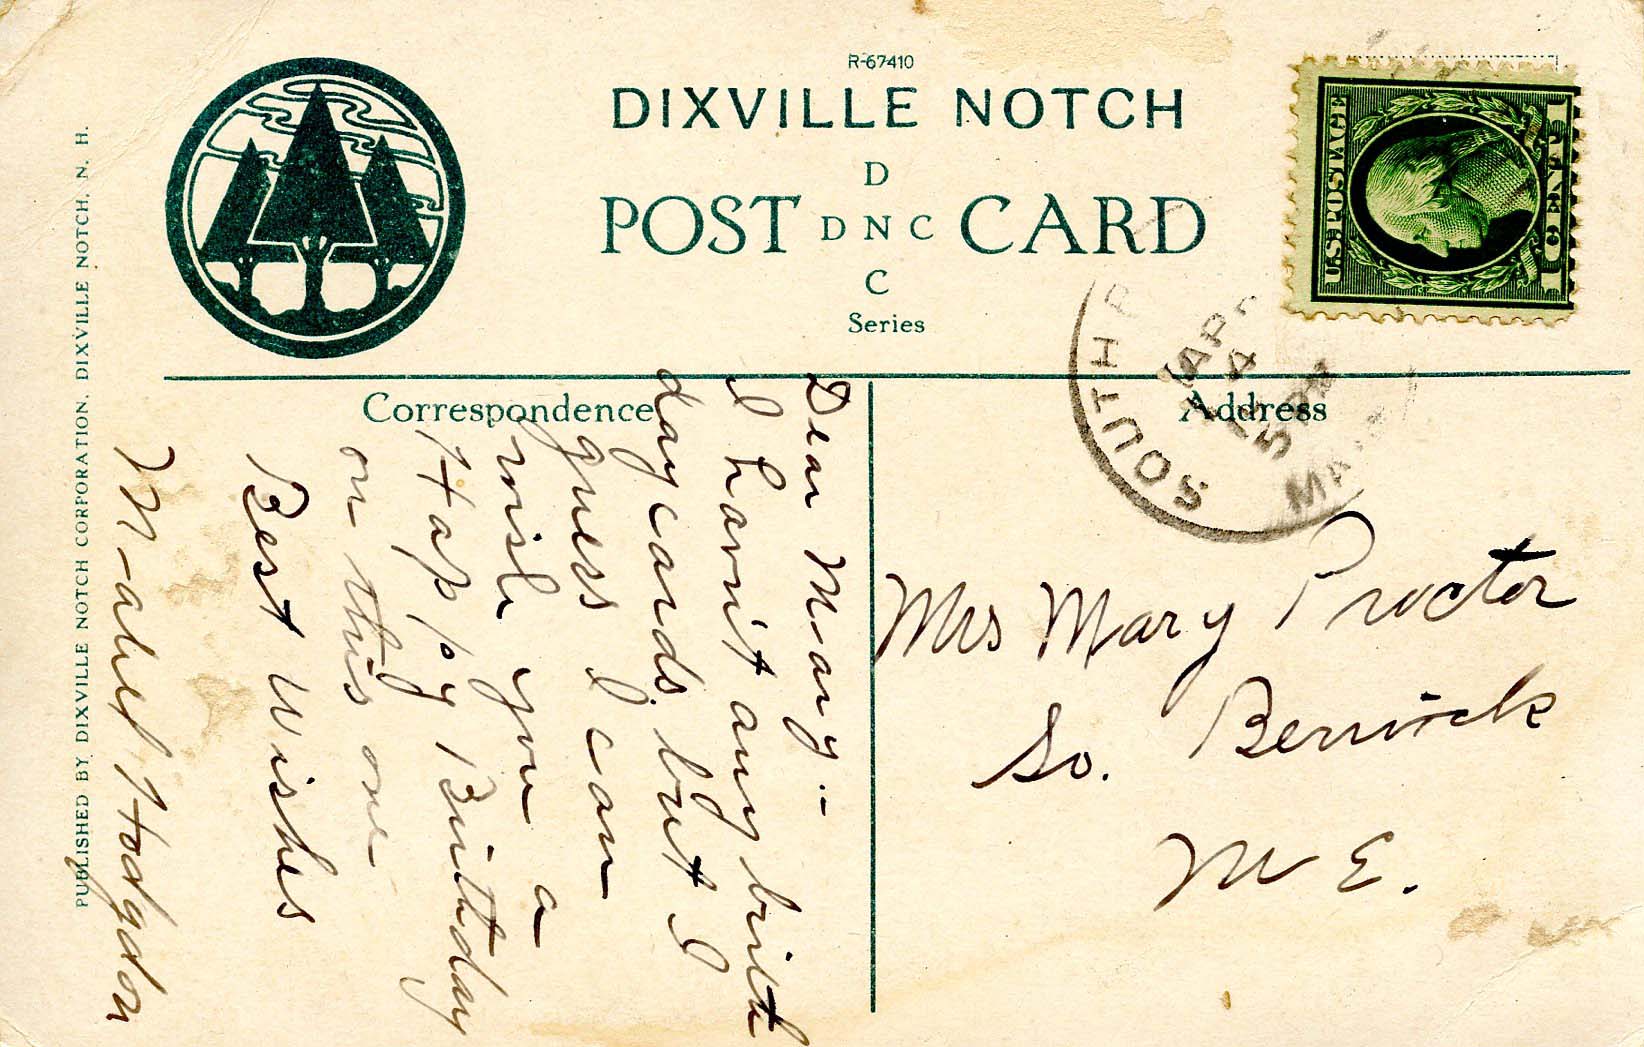 R-67410
DIXVILLE NOTCH
D
POST D N C CARD
C
Series
U.S. POSTAGE
1 CENT 1
SOUTH
4
5 PM
Correspondence
Address
Dear Mary:-
I havn't any birth
day cards, but I
guess I can
wish you a
Happy Birthday
on this one
Best Wishes
Mabel Hodgdon
Mrs Mary Proctor
So. Berwick
ME.
PUBLISHED BY DIXVILLE NOTCH CORPORATION, DIXVILLE NOTCH, N. H.